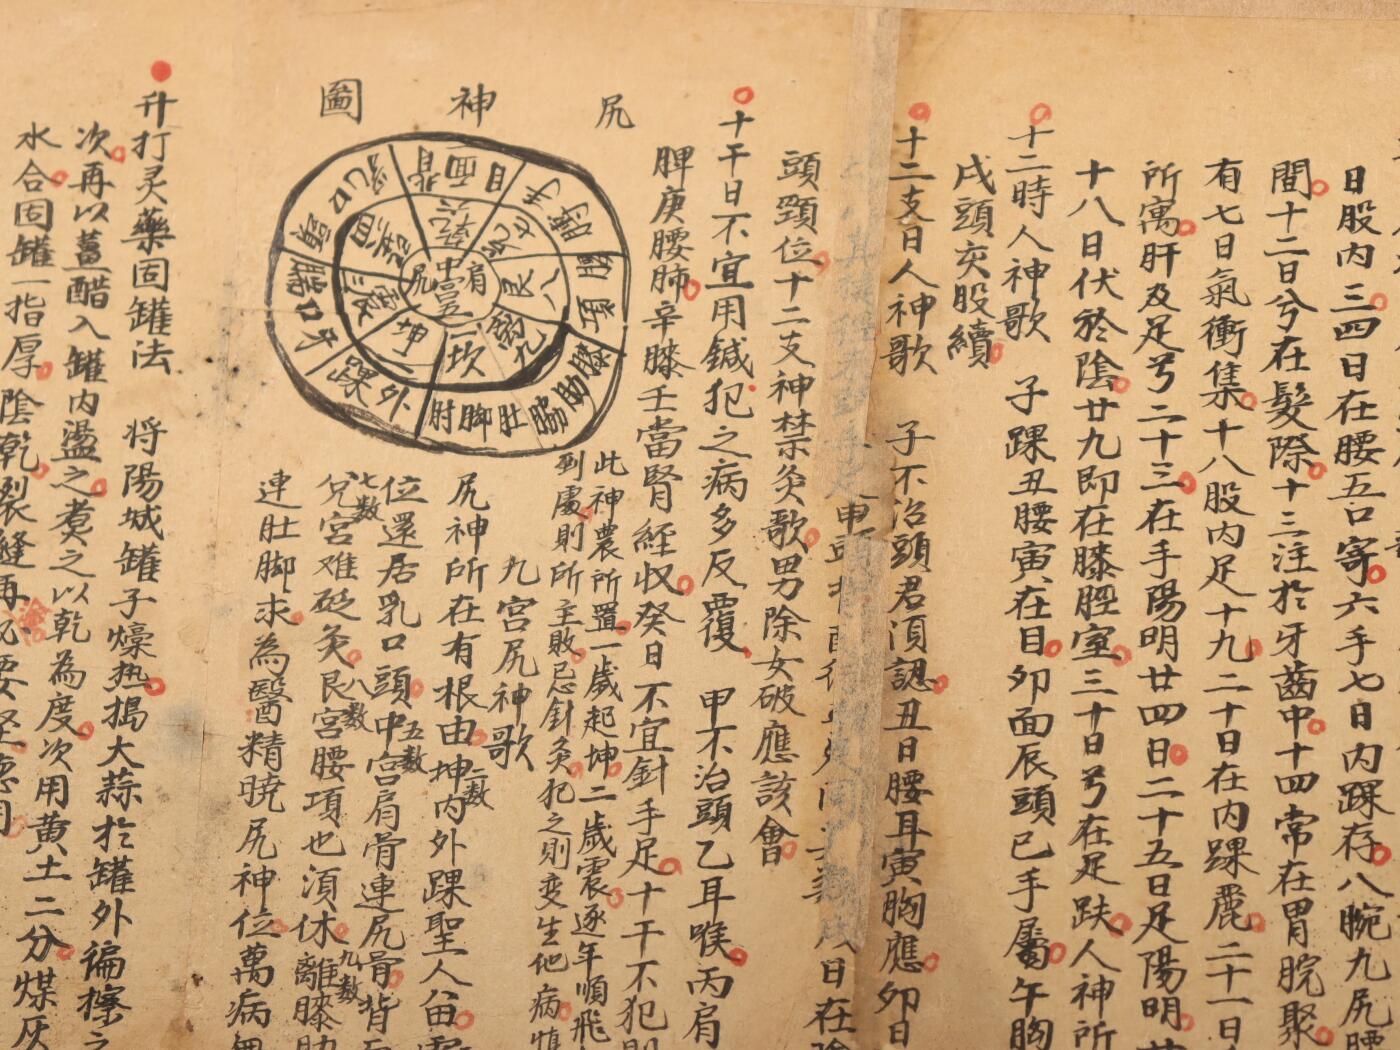 日股内三四日在腰五口寄六手七日内踝存八腕九尻腰
間十二日兮在髮際十三注於牙齒中十四常在胃脘聚
有七日氣衝集十八股内足十九二十日在内踝麗二十一日
所寓肝及足兮二十三在手陽明廿四日二十五日足陽明
十八日伏於陰廿九即在膝脛室三十日兮在足趺人神所
十二時人神歌 子踝丑腰寅在目卯面辰頭巳手屬午胸
戌頭亥股續
十二支日人神歌 子不治頭君湏認丑日腰耳寅胸應卯日
日在陰
頭頸位十二支神禁灸歌男除女破應該會
十干日不宜用鍼犯之病多反覆 甲不治頭乙耳喉丙肩
脾庚腰肺辛膝壬當腎經収癸日不宜針手足十干不犯則
尻神圖
乳口頭
目面背
手膊
項腰
膝肋脇
肚脚肘
外踝
牙口腸
乾六
艮八
離九
坎一
坤
震三
巽四
中宮五
肩尻
此神農所置一歲起坤二歲震逐年順飛
到處則所主敗忌針灸犯之則变生他病慎
九宮尻神歌
尻神所在有根由坤内外踝聖人留
二数
位還居乳口頭中宮肩骨連尻骨背
五数
七数
兌宮难砭灸艮宮腰項也湏休離膝肋
八数
九数
連肚脚求為醫精曉尻神位萬病無
升打灵藥固罐法 将陽城罐子燺热搗大蒜於罐外徧擦之
次再以薑醋入罐内盪之煮之以乾為度次用黄土二分煤灰
水合固罐一指厚陰乾裂縫再